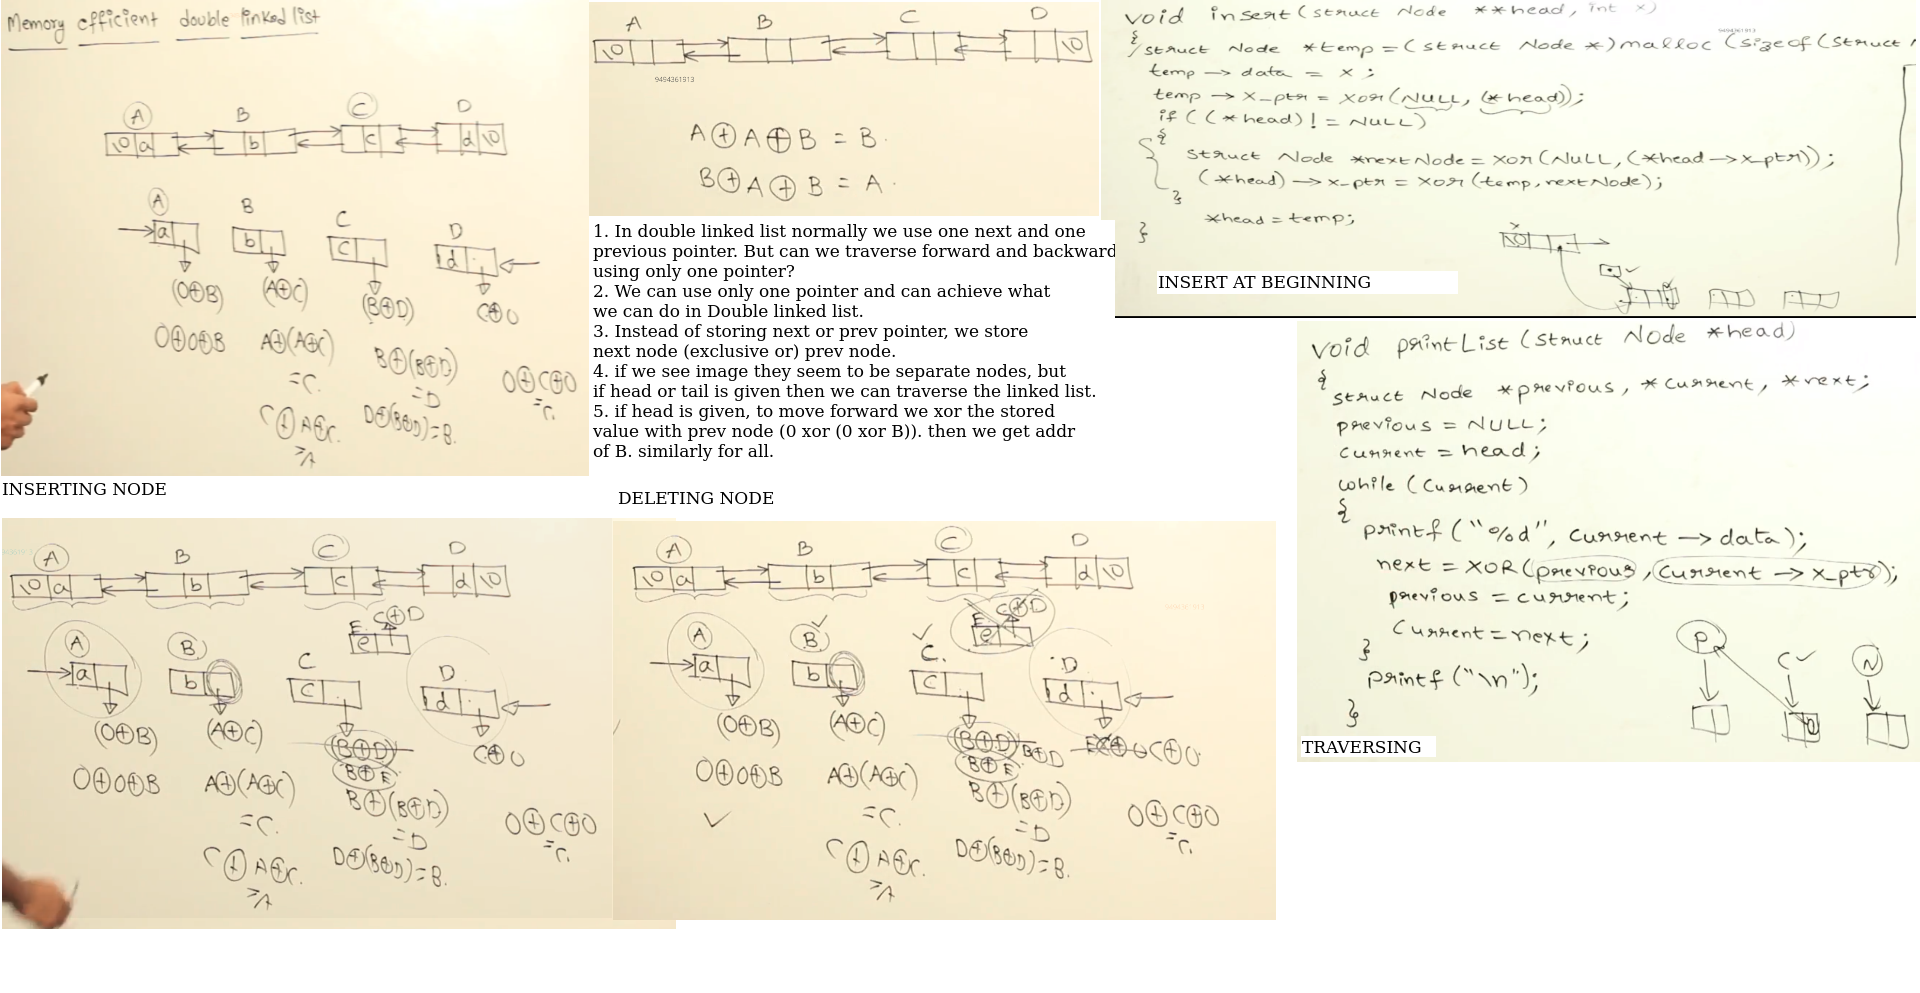 Memory efficient double linked list
A
B
C
D
10 a
b
c
d 10
A
B
C
D
a
b
c
d
(0⊕B)
(A⊕C)
(B⊕D)
C⊕0
0⊕0⊕B
A⊕(A⊕C)
= C.
C⊕A⊕C.
= A
B⊕(B⊕D)
= D
D⊕(B⊕D) = B.
0⊕C⊕0
= C.
A B C D
10
10
9494361913
A⊕A⊕B = B.
B⊕A⊕B = A.
1. In double linked list normally we use one next and one
previous pointer. But can we traverse forward and backward
using only one pointer?
2. We can use only one pointer and can achieve what
we can do in Double linked list.
3. Instead of storing next or prev pointer, we store
next node (exclusive or) prev node.
4. if we see image they seem to be separate nodes, but
if head or tail is given then we can traverse the linked list.
5. if head is given, to move forward we xor the stored
value with prev node (0 xor (0 xor B)). then we get addr
of B. similarly for all.
void insert(struct Node **head, int x)
9494361913
{
struct Node *temp = (struct Node *)malloc (sizeof(struct
temp -> data = x ;
temp -> x_ptr = xor(NULL, (*head));
if ((*head) != NULL)
{
struct Node *nextNode = xor(NULL, (*head->x_ptr));
(*head) -> x_ptr = xor(temp, nextNode);
}
*head = temp;
}
10
INSERT AT BEGINNING
void printList (struct Node *head)
{
struct Node *previous, *current, *next;
previous = NULL;
current = head;
while (current)
{
printf ("%d", current -> data);
next = XOR(previous, current -> x_ptr);
previous = current;
current = next;
}
printf ("\n");
}
P
C
N
TRAVERSING
INSERTING NODE
A
B
C
D
10 a
b
c
d 10
E
C⊕D
e
A
B
C
D
a
b
c
d
(0⊕B)
(A⊕C)
(B⊕D)
B⊕E
C⊕0
0⊕0⊕B
A⊕(A⊕C)
= C.
C⊕A⊕C.
= A
B⊕(B⊕D)
= D
D⊕(B⊕D) = B.
0⊕C⊕0
= C.
DELETING NODE
A
B
C
D
10 a
b
c
d 10
E
C⊕D
e
A
B
C.
D
a
b
c
d
(0⊕B)
(A⊕C)
(B⊕D)
B⊕D
B⊕E
E⊕0
C⊕0
0⊕0⊕B
A⊕(A⊕C)
= C.
C⊕A⊕C.
= A
B⊕(B⊕D)
= D
D⊕(B⊕D) = B.
0⊕C⊕0
= C.